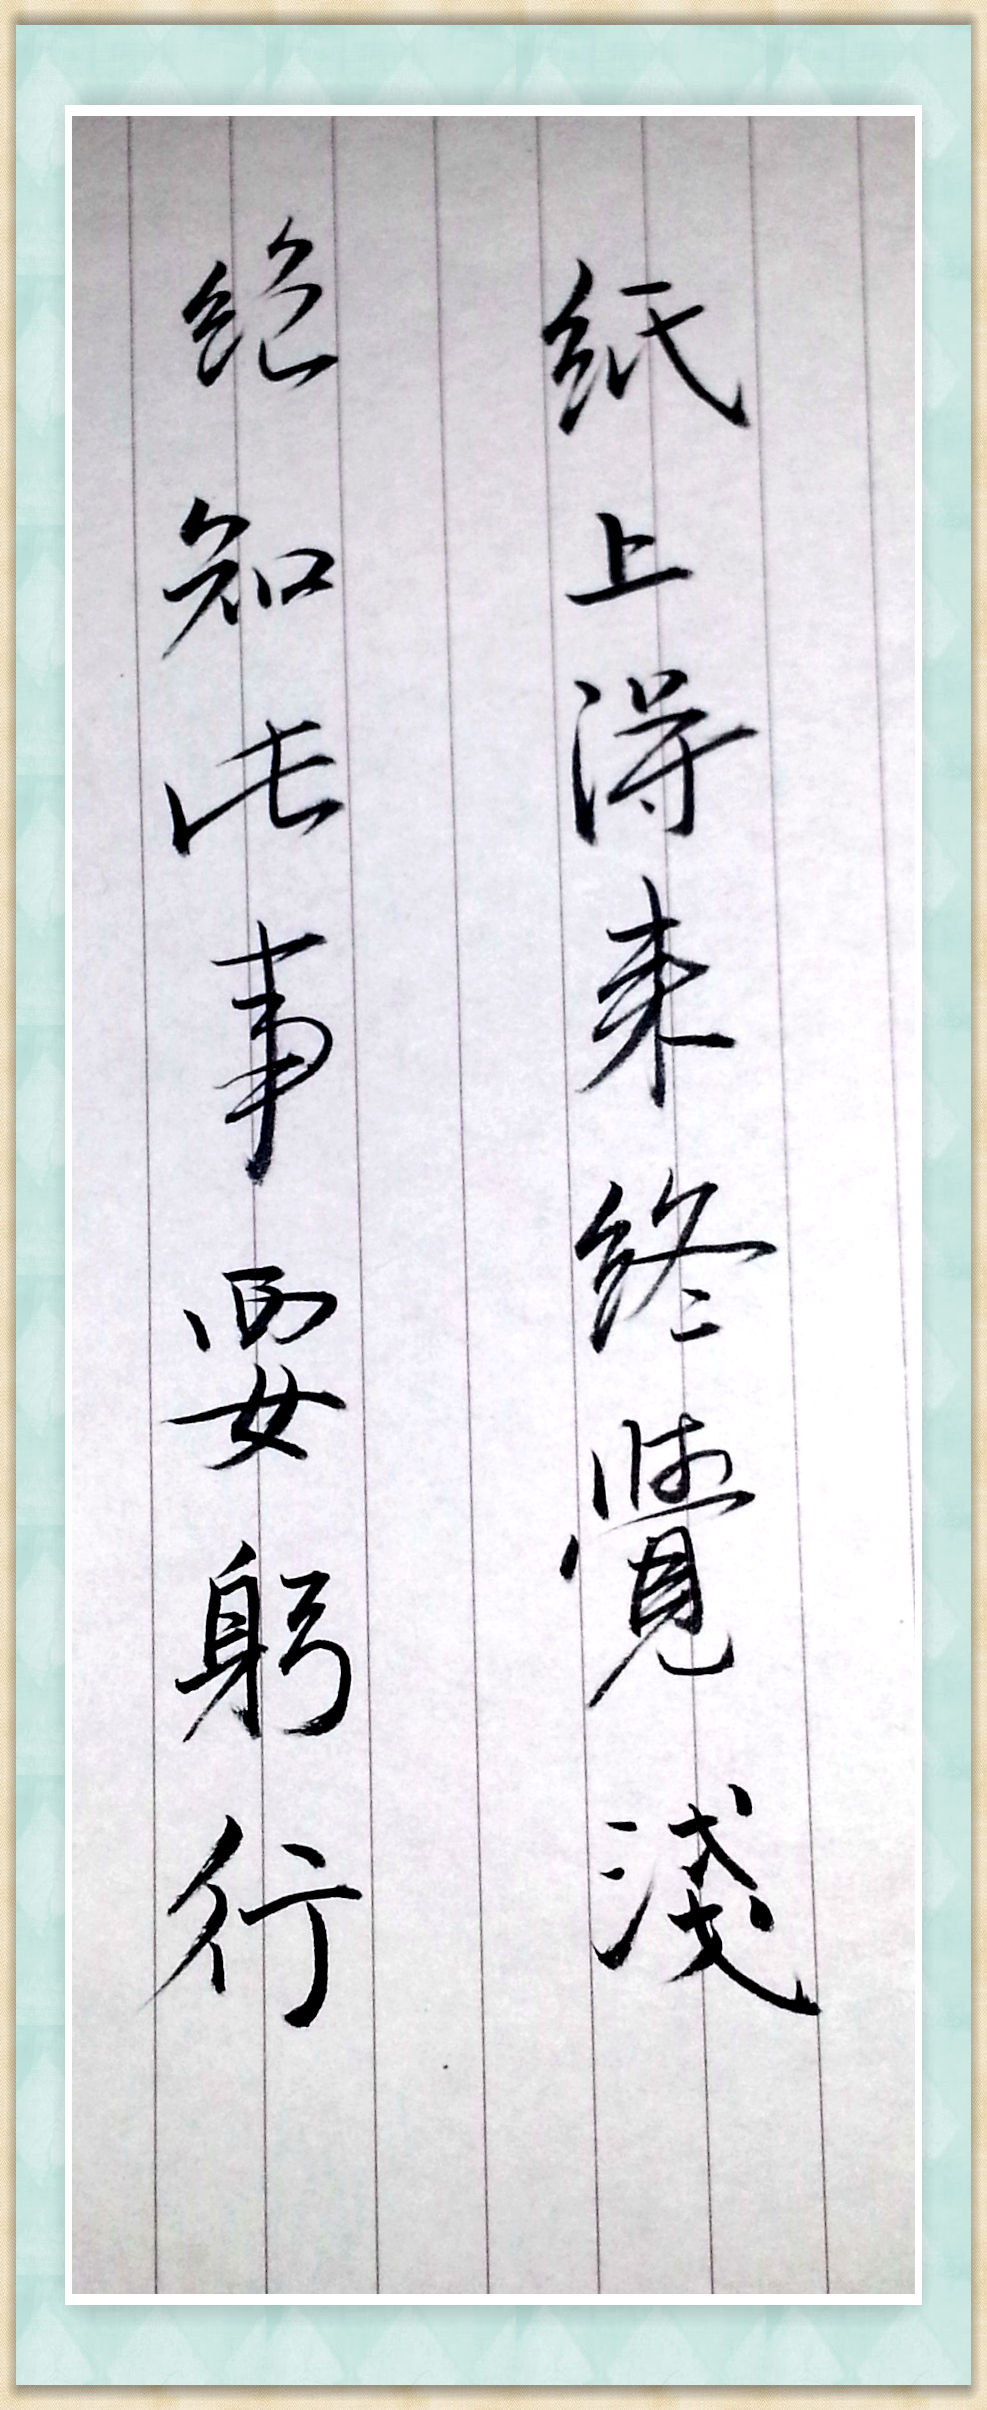 紙上得来終覺淺
絕知此事要躬行